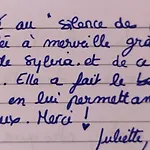 au "silence des
à merveille
de Sylvia et de
. Elle a fait le
en lui permettan
. Merci !
Juliette,